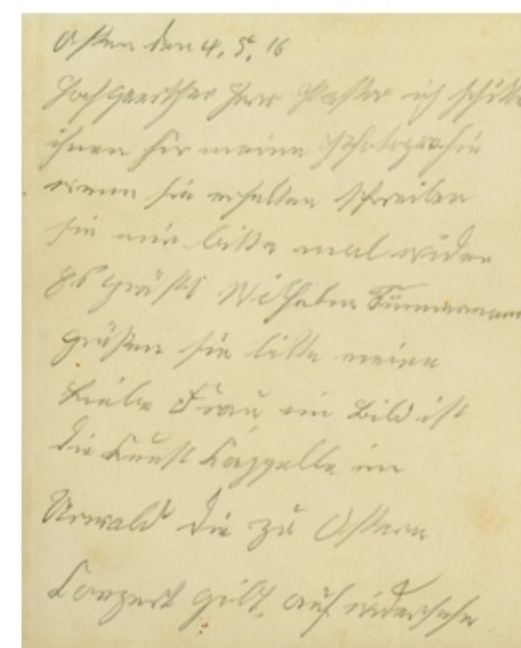 Osten den 4. 5. 16
Hochgeerther Herr Pastor ich schike
ihnen hir meine Photografie
wenn sie erhalten schreiben
sie mir bitte mal wider
Es grüst Wilhelm
grüßen sie bitte meine
Liebe Frau ein Bild ist
die Kunst Kappelle im
Urwald die zu Ostern
Conzert gibt. auf widersehn